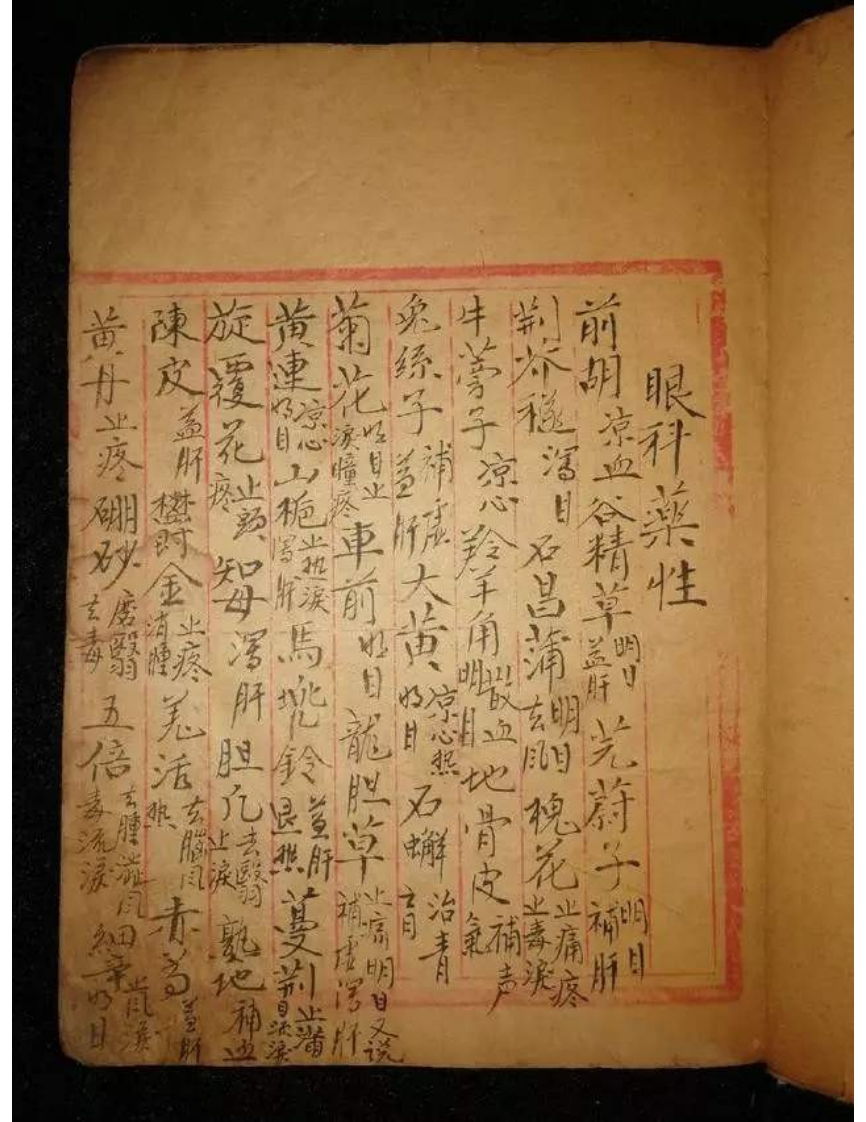 眼科藥性
前胡 凉血 谷精草 明目益肝 茺蔚子 明目補肝
荆芥穗 瀉目 石昌蒲 明目去風 槐花 止痛疼止毒淚
牛蒡子 凉心 羚羊角 散血明目 地骨皮 補声氣
兔絲子 補虛益肝 大黄 凉心熱明目 石蠏 治青盲
菊花 明目止淚瞳疼 車前 明目 龍胆草 止痛明目又説補虛瀉肝
黄連 凉心明目 山梔 止热淚瀉肝 馬兠鈴 益肝退热 蔓荆 目流淚
旋覆花 止頭疼 知母 瀉肝胆 去翳止淚 熟地 補血
陳皮 益肝 金 止疼消腫 羌活 去腦風热 赤芍 益肝
黄丹 止疼 硼砂 磨翳去毒 五倍 去腫澁風毒流淚 細辛 止風淚明目